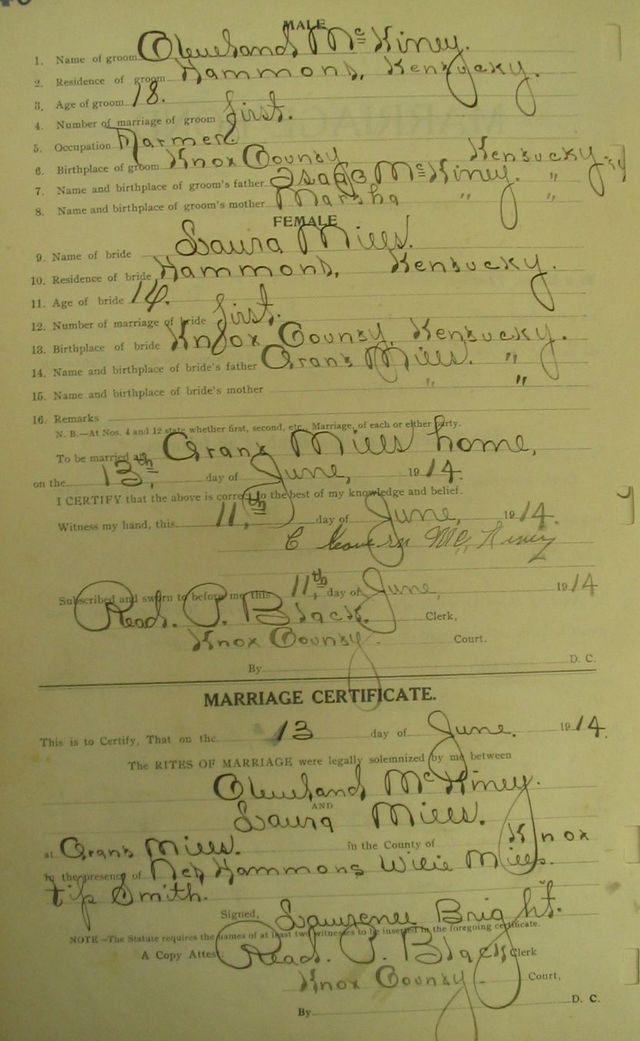 MALE
1. Name of groom Cleveland McKiney.
2. Residence of groom Hammond, Kentucky.
3. Age of groom 18.
4. Number of marriage of groom first.
5. Occupation Farmer
6. Birthplace of groom Knox County Kentucky.
7. Name and birthplace of groom's father Isaac McKiney. " "
8. Name and birthplace of groom's mother Marsha " "
FEMALE
9. Name of bride Laura Mills.
10. Residence of bride Hammond, Kentucky.
11. Age of bride 14.
12. Number of marriage of bride first.
13. Birthplace of bride Knox County, Kentucky.
14. Name and birthplace of bride's father Grant Mills. " "
15. Name and birthplace of bride's mother " "
16. Remarks
N. B.—At Nos. 4 and 12 state whether first, second, etc., Marriage, of each or either party.
To be married at Grant Mills home,
on the 13th, day of June, 1914.
I CERTIFY that the above is correct to the best of my knowledge and belief.
Witness my hand, this 11,th day of June, 1914.
McKiney
Subscribed and sworn to before me this 11,th day of June, 1914
Read. P. Black. Clerk,
Knox County. Court.
By D. C.
MARRIAGE CERTIFICATE.
This is to Certify, That on the 13 day of June. 1914.
The RITES OF MARRIAGE were legally solemnized by me between
Cleveland McKiney.
AND
Laura Mills.
at Grant Mills. in the County of Knox
in the presence of Hammons Willie Mills.
Smith.
Signed, Lawrence Bright.
NOTE—The Statute requires the names of at least two witnesses to be inserted in the foregoing certificate.
A Copy Attest Read. P. Black Clerk
Knox County Court,
By D. C.